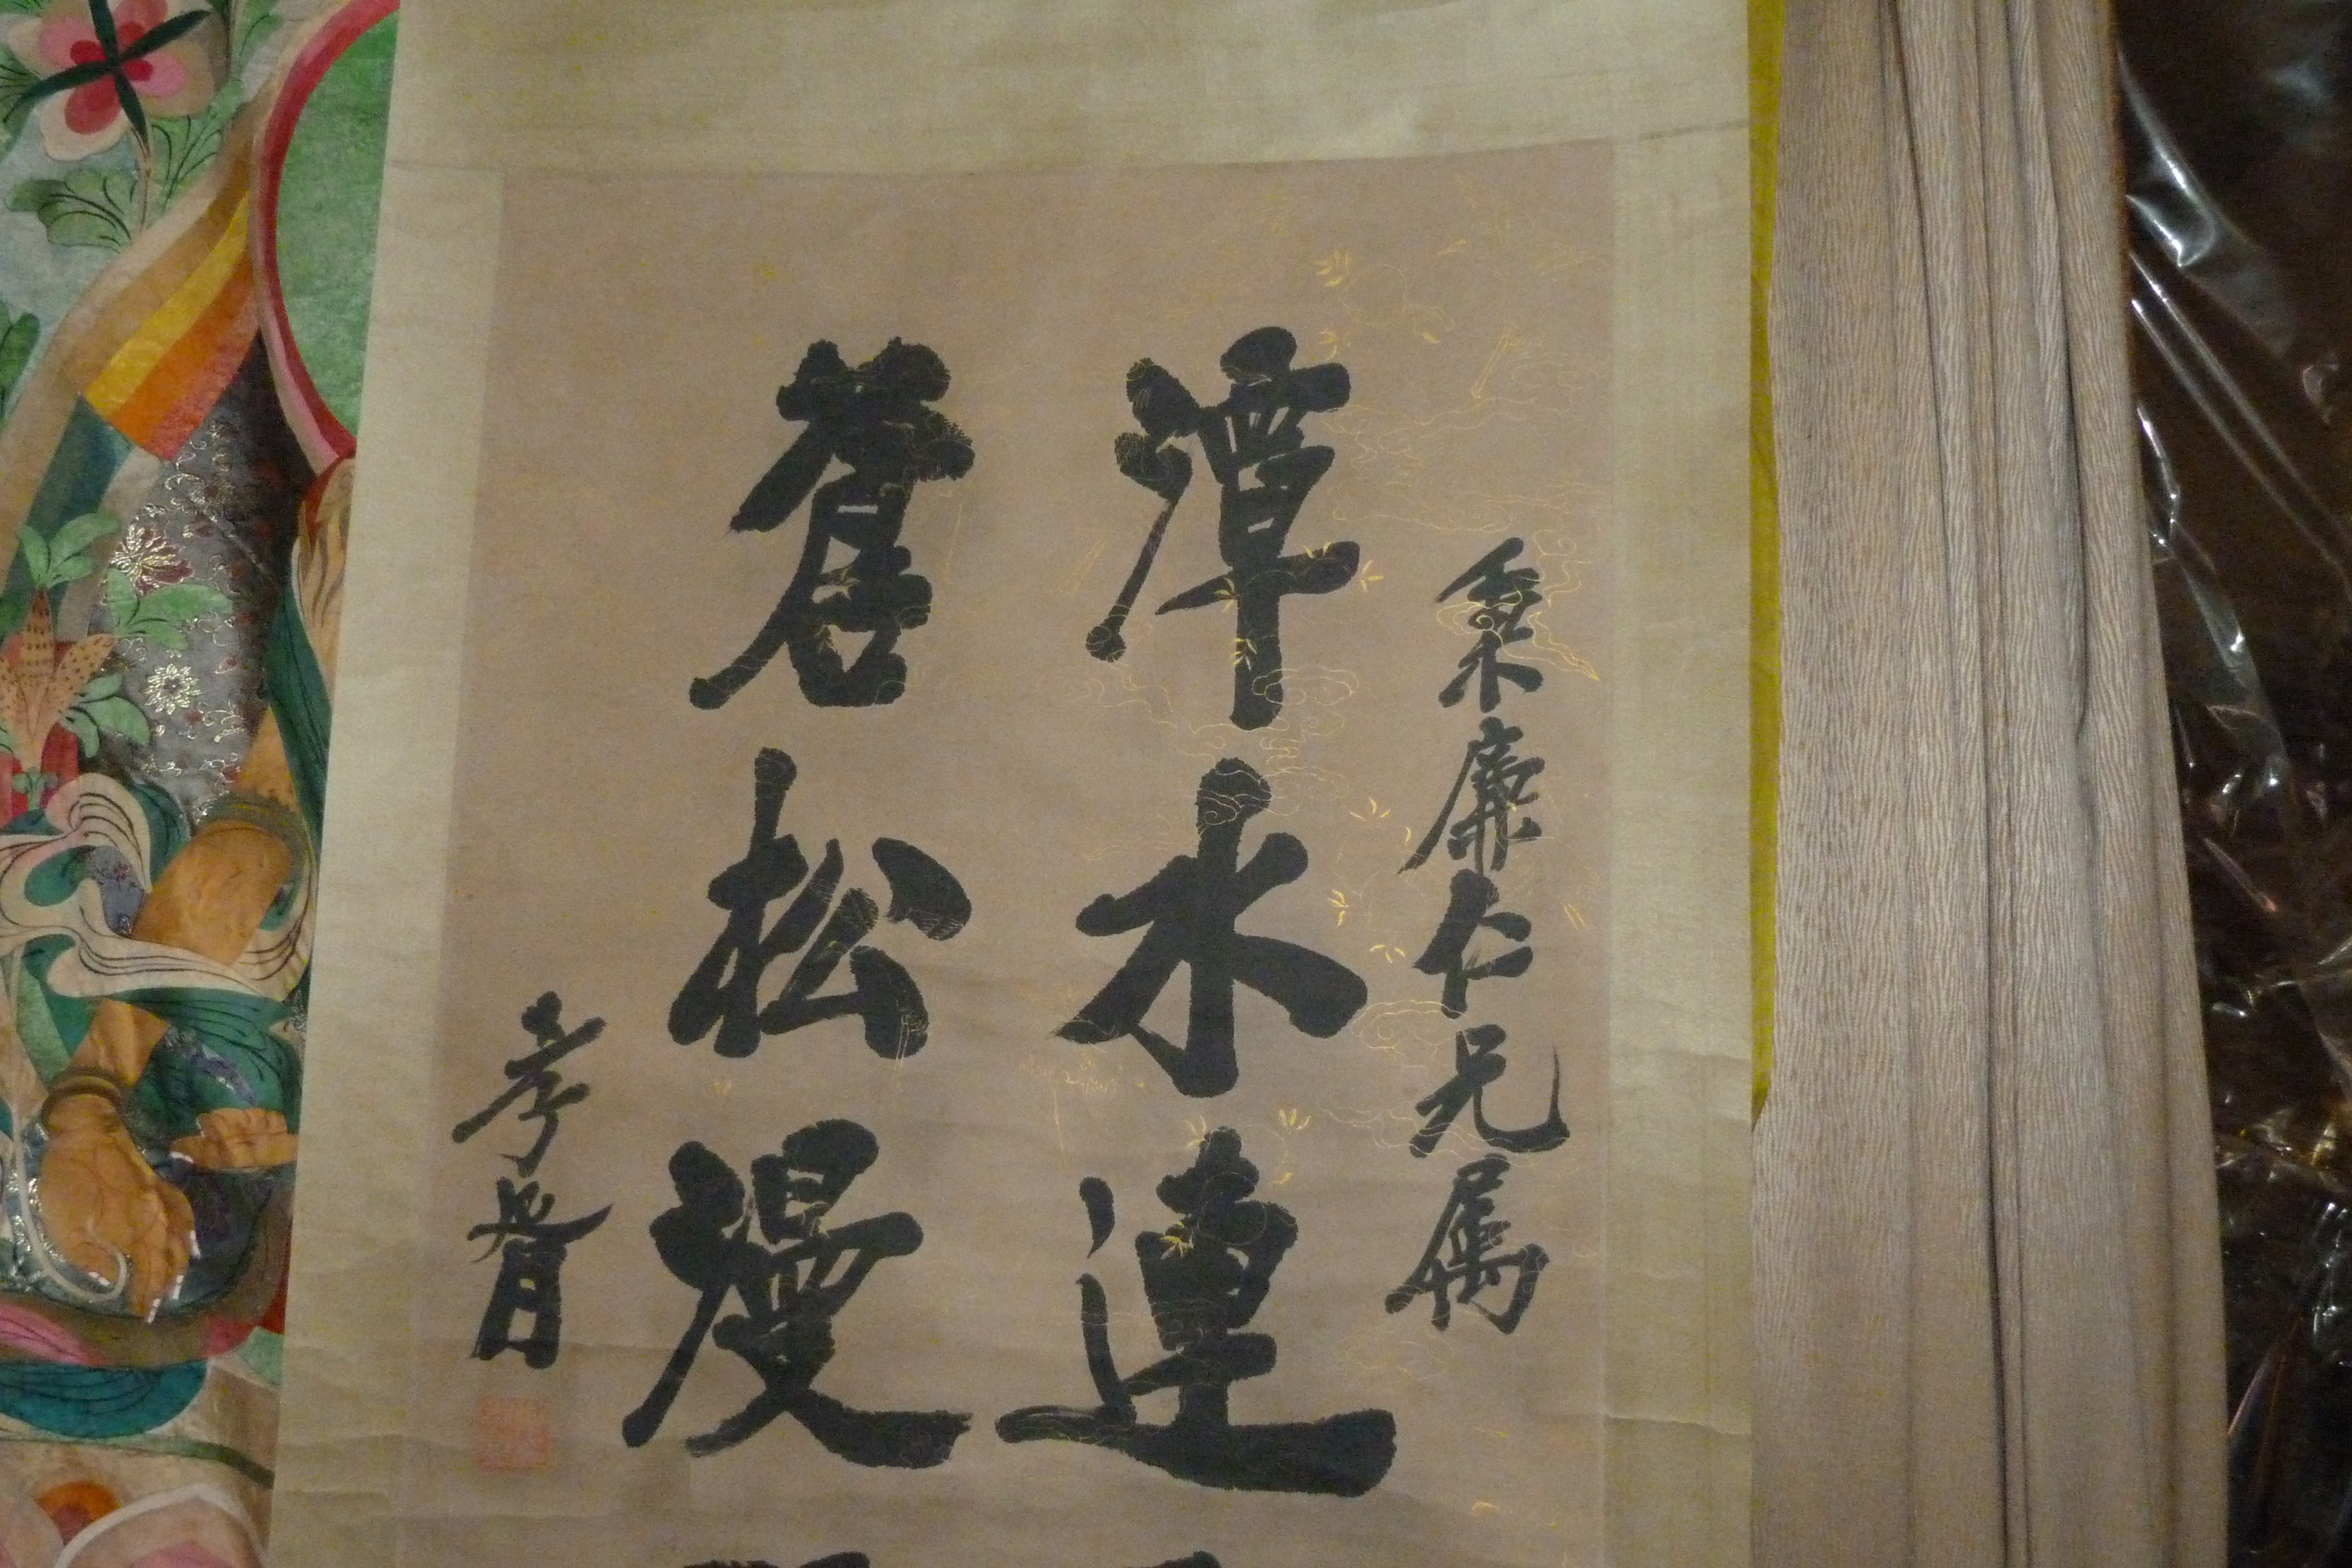 秉廉仁兄属
潭水連
蒼松漫
孝胥